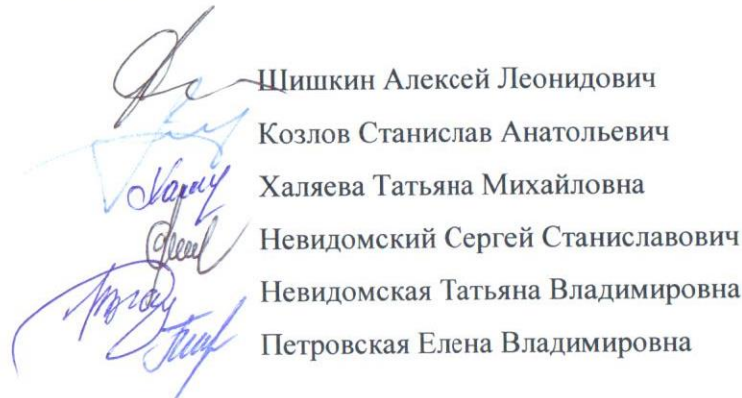 Шишкин Алексей Леонидович
Козлов Станислав Анатольевич
Халяева Татьяна Михайловна
Невидомский Сергей Станиславович
Невидомская Татьяна Владимировна
Петровская Елена Владимировна